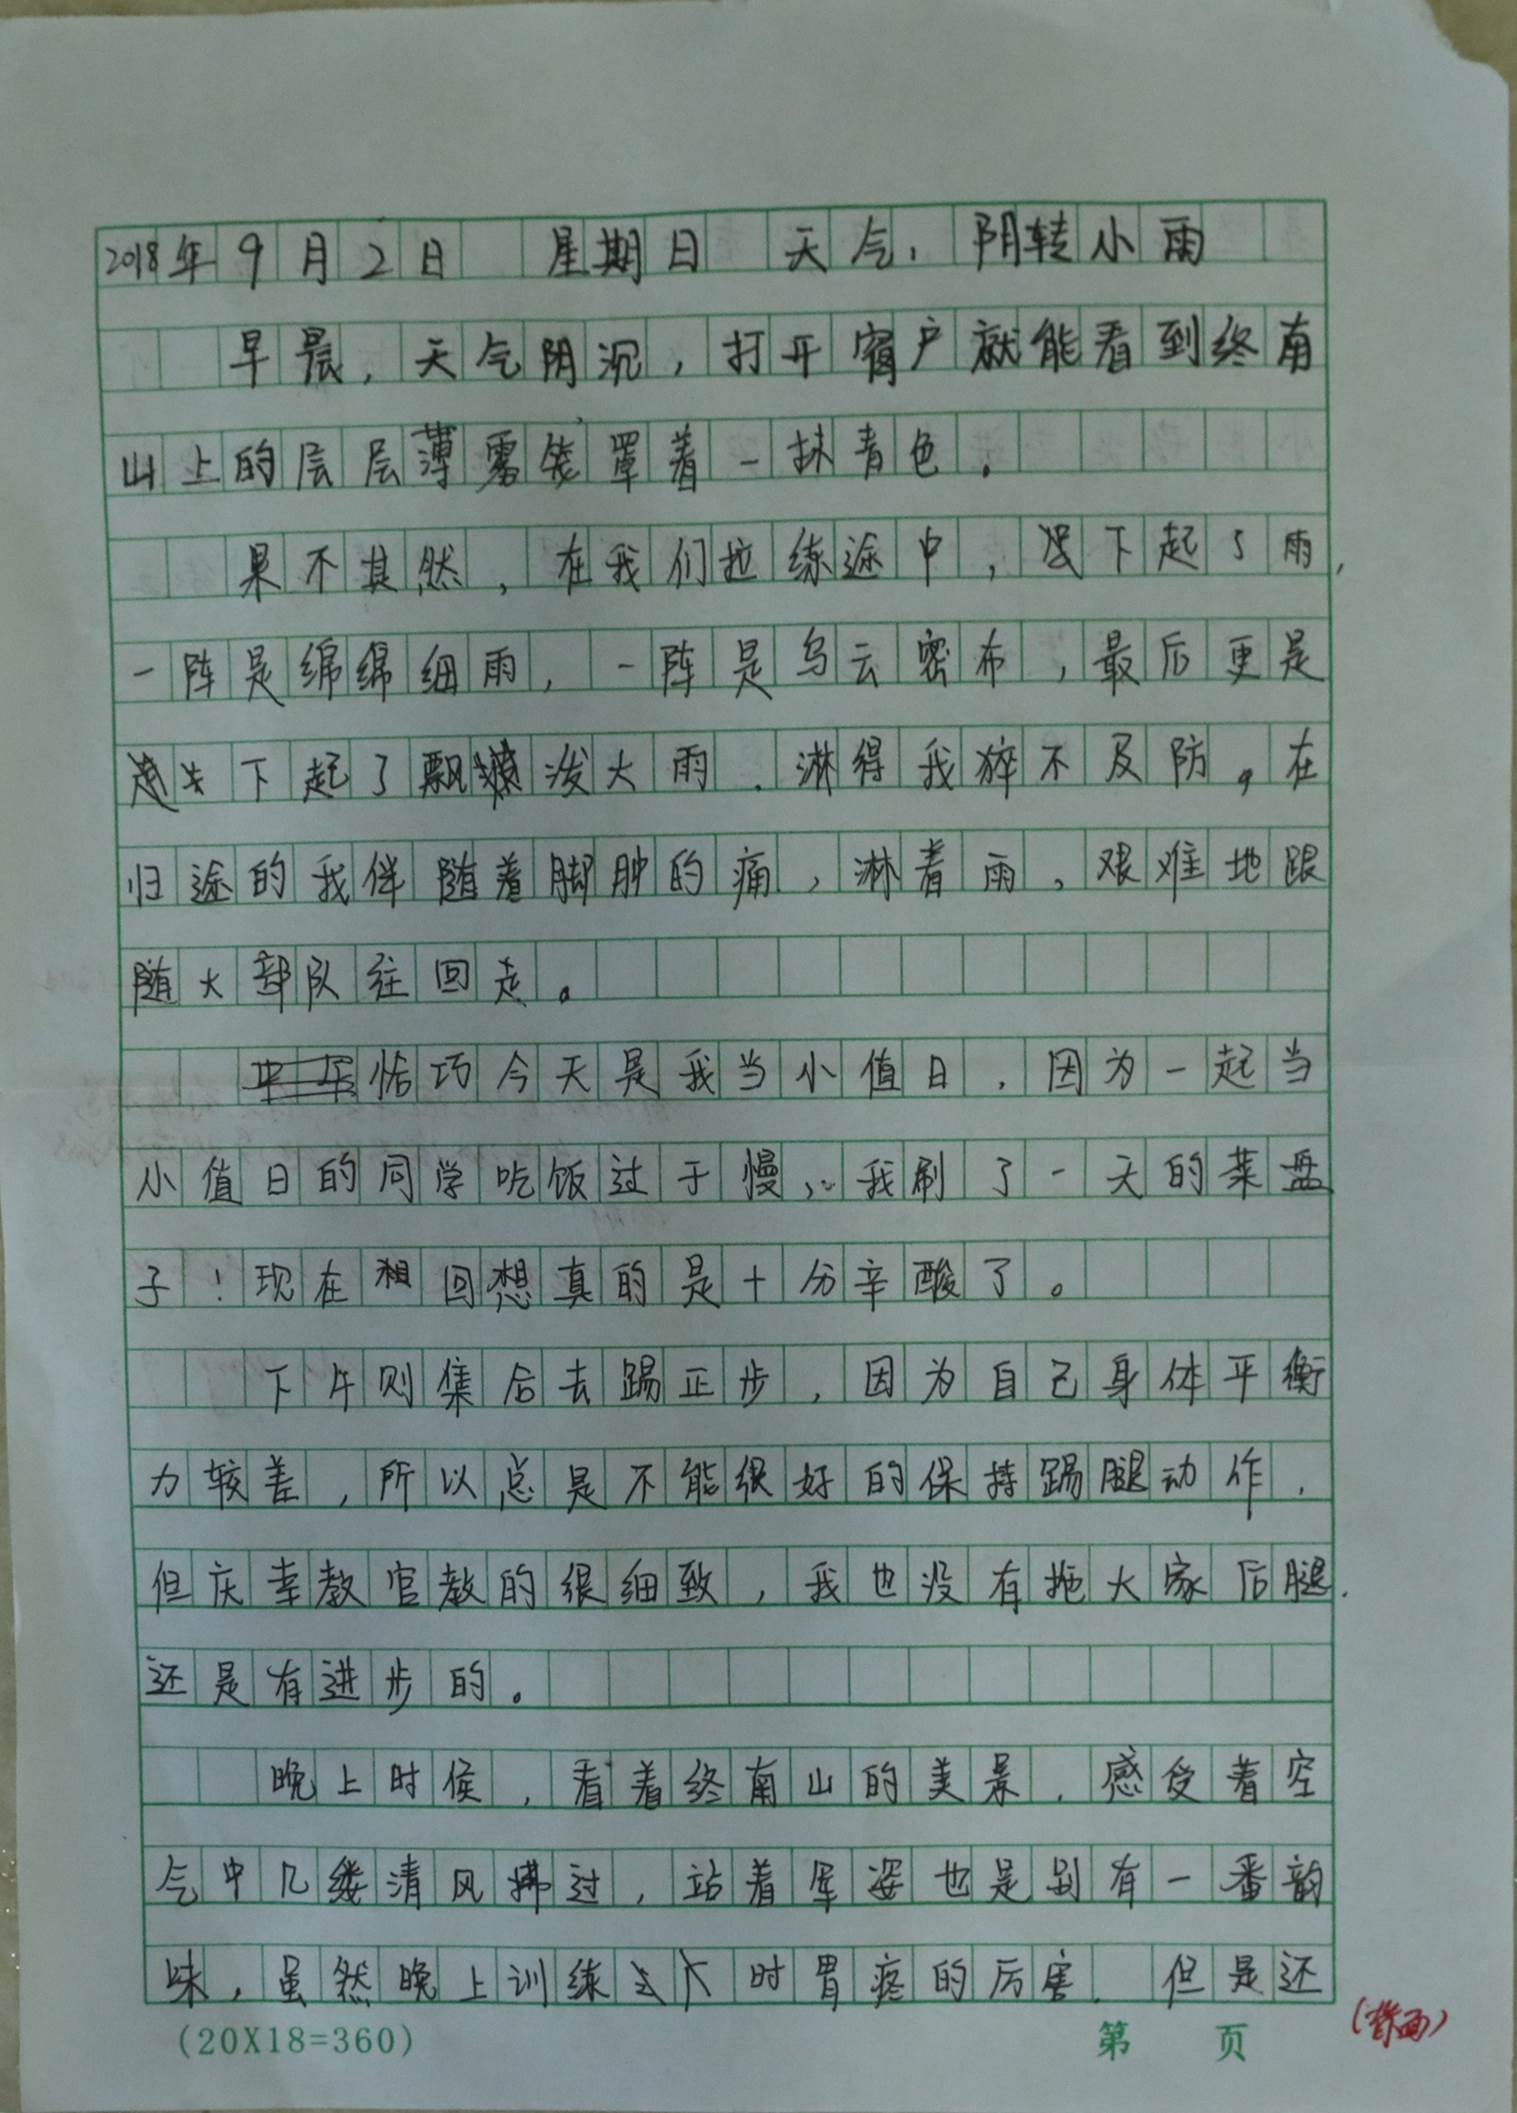 2018年9月2日 星期日 天气,阴转小雨
早晨,天气阴沉,打开窗户就能看到终南
山上的层层薄雾笼罩着一抹青色。
果不其然,在我们拉练途中,下起了雨,
一阵是绵绵细雨,一阵是乌云密布,最后更是
下起了瓢泼大雨.淋得我猝不及防。在
归途的我伴随着脚肿的痛,淋着雨,艰难地跟
随大部队往回走。
恰巧今天是我当小值日,因为一起当
小值日的同学吃饭过于慢,我刷了一天的菜盘
子!现在回想真的是十分辛酸了。
下午则集后去踢正步,因为自己身体平衡
力较差,所以总是不能很好的保持踢腿动作,
但庆幸教官教的很细致,我也没有拖大家后腿.
还是有进步的。
晚上时候,看着终南山的美景,感受着空
气中几缕清风拂过,站着军姿也是别有一番韵
味,虽然晚上训练时胃疼的厉害,但是还
(20X18=360) 第 页
(背面)